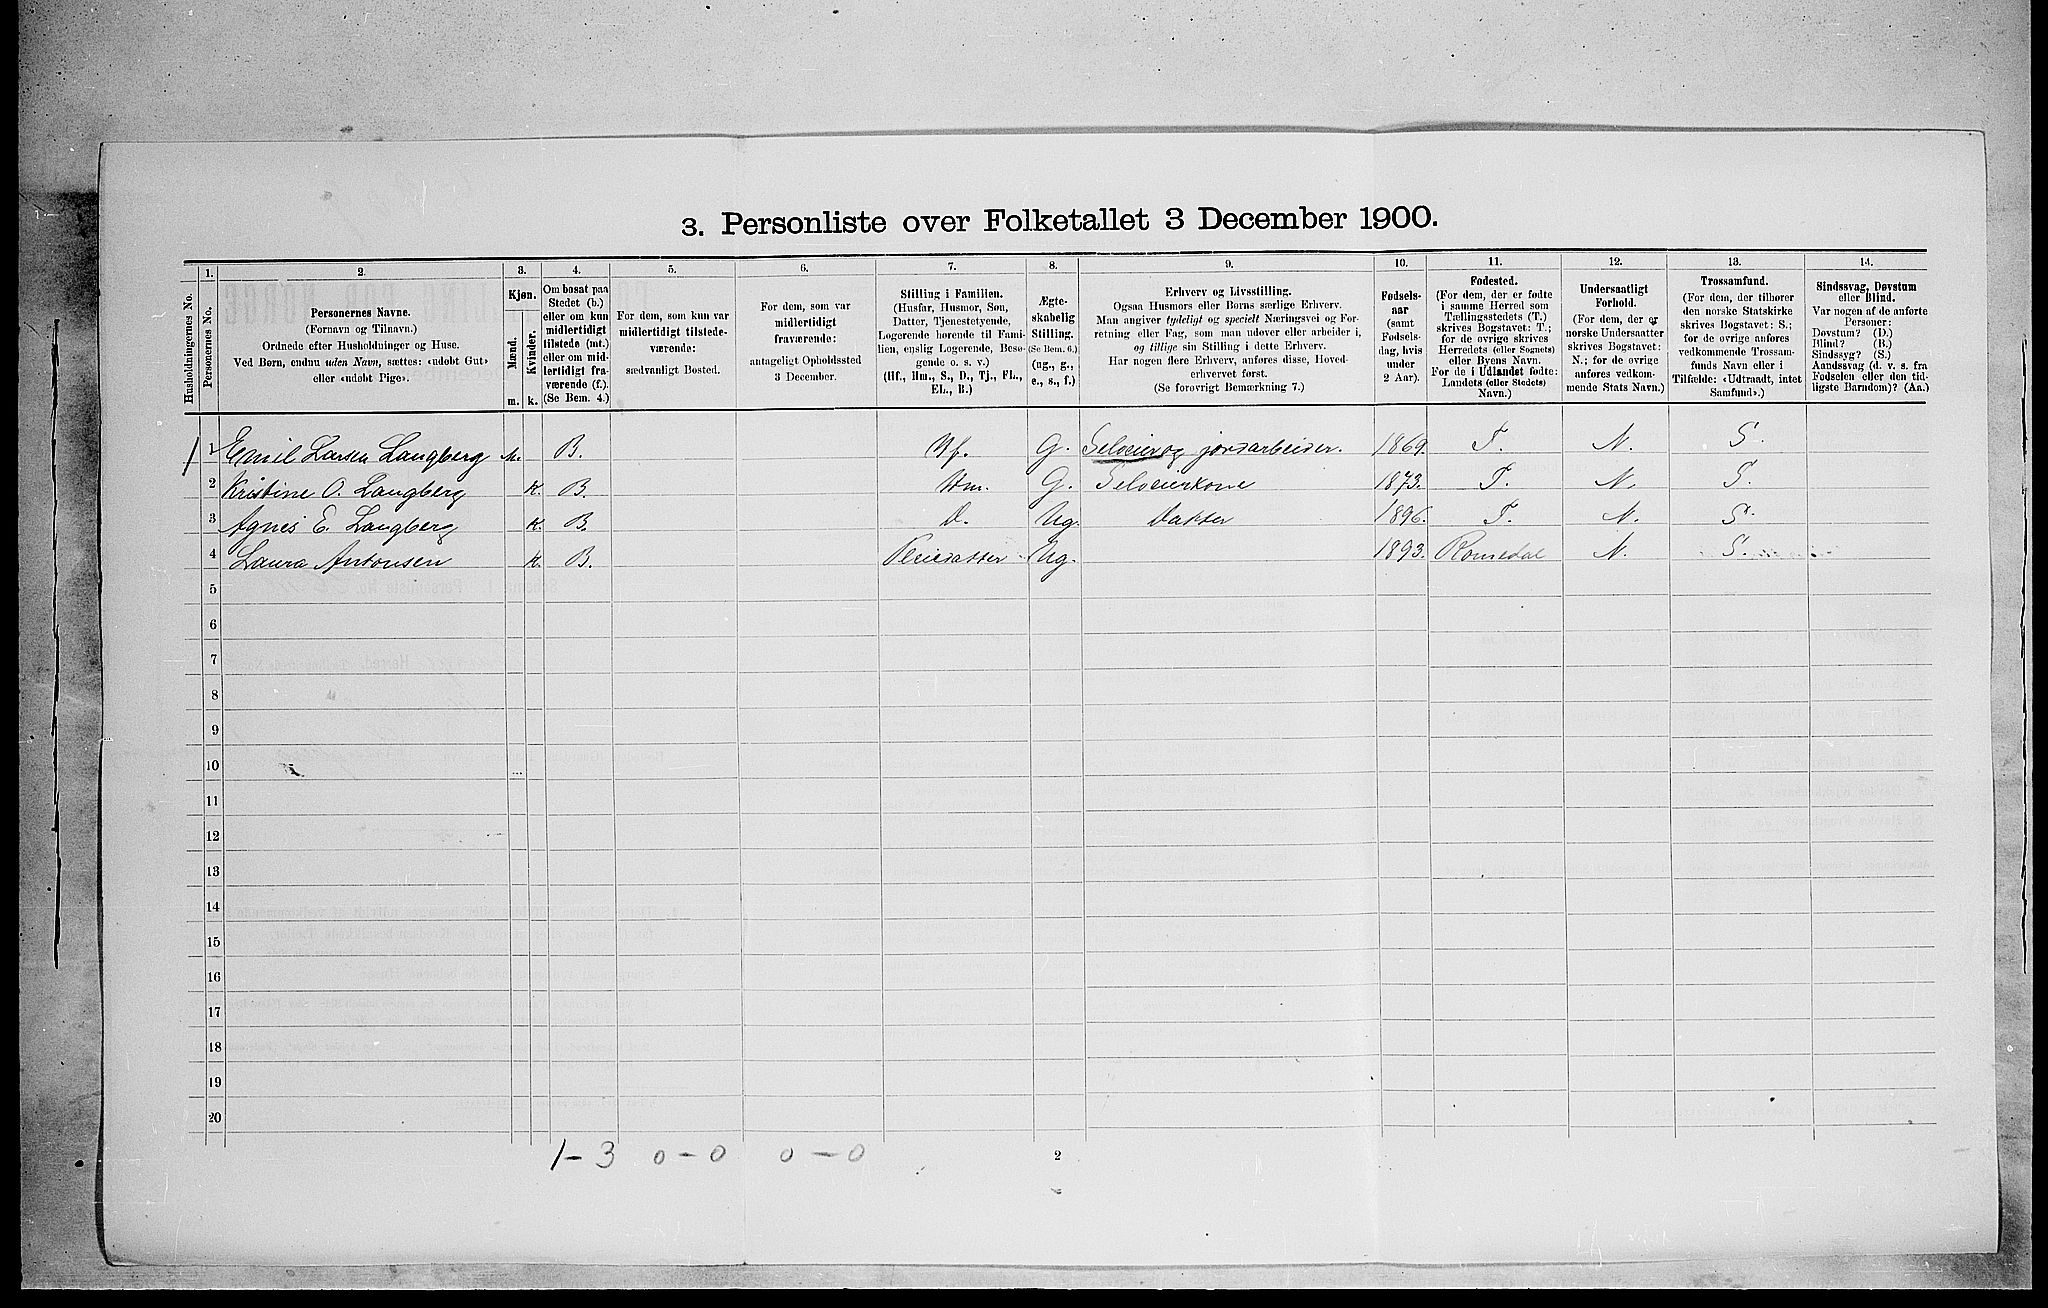 3. Personliste over Folketallet 3 December 1900.
Husholdningernes No.
1.
Personernes No.
2.
Personernes Navne.
(Fornavn og Tilnavn.)
Ordnede efter Husholdninger og Huse.
Ved Børn, endnu uden Navn, sættes: «udøbt Gut»
eller «udøbt Pige».
3.
Kjøn.
Mænd.
Kvinder.
m.
k.
4.
Om bosat paa
Stedet (b.)
eller om kun
midlertidigt
tilstede (mt.)
eller om mid-
lertidigt fra-
værende (f.).
(Se Bem. 4.)
5.
For dem, som kun var
midlertidigt tilstede-
værende:
sædvanligt Bosted.
6.
For dem, som var
midlertidigt
fraværende:
antageligt Opholdssted
3 December.
7.
Stilling i Familien.
(Husfar, Husmor, Søn,
Datter, Tjenestetyende,
Logerende hørende til Fami-
lien, enslig Logerende, Besø-
gende o. s. v.)
(Hf., Hm., S., D., Tj., FL.,
EL., B.)
8.
Ægte-
skabelig
Stilling.
(Se Bem. 6.)
(ug., g.,
e., s., f.)
9.
Erhverv og Livsstilling.
Ogsaa Husmors eller Børns særlige Erhverv.
Man angiver tydeligt og specielt Næringsvei og For-
retning eller Fag, som man udøver eller arbeider i,
og tillige sin Stilling i dette Erhverv.
Har nogen flere Erhverv, anføres disse, Hoved-
erhvervet først.
(Se forøvrigt Bemærkning 7.)
10.
Fødsels-
aar
(samt
Fødsels-
dag, hvis
under
2 Aar).
11.
Fødested.
(For dem, der er fødte
i samme Herred som
Tællingsstedets (T.)
skrives Bogstavet: T.;
for de øvrige skrives
Herredets (eller Sognets)
eller Byens Navn.
For de i Udlandet fødte:
Landets (eller Stedets)
Navn.)
12.
Undersaatligt
Forhold.
(For dem, der er
norske Undersaatter
skrives Bogstavet:
N.; for de øvrige
anføres vedkom-
mende Stats Navn.)
13.
Trossamfund.
(For dem, der tilhører
den norske Statskirke
skrives Bogstavet: S.;
for de øvrige anføres
vedkommende Trossam-
funds Navn eller i
Tilfælde: «Udtraadt, intet
Samfund».)
14.
Sindssvag, Døvstum
eller Blind.
Var nogen af de anførte
Personer:
Døvstum? (D.)
Blind? (B.)
Sindssyg? (S.)
Aandssvag (d. v. s. fra
Fødselen eller den tid-
ligste Barndom)? (Aa.)
1 1 Emil Larsen Langberg m. B. Hf. G. Selveier og jordarbeider. 1869. T. N. S.
2 Kristine O. Langberg k. B. Hm. G. Selveierkone 1873. T. N. S.
3 Agnes E. Langberg k. B. D. Ug. Datter 1896. T. N. S.
4 Laura Antonsen k. B. Pleiedatter Ug. 1893. Romedal N. S.
5
6
7
8
9
10
11
12
13
14
15
16
17
18
19
20
1 – 3 0 – 0 0 – 0
2